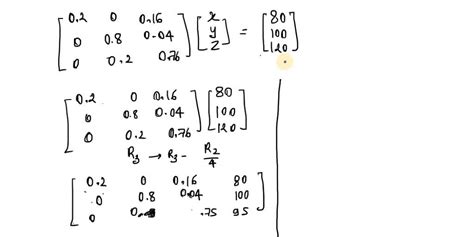 [0.2 0 0.16] [x] = [80]
[0 0.8 0.04] [y] [100]
[0 0.2 0.76] [z] [120]
[0.2 0 0.16] [80]
[0 0.8 0.04] [100]
[0 0.2 0.76] [120]
R₃ → R₃ - R₂/4
[0.2 0 0.16 80]
[0 0.8 0.04 100]
[0 0 .75 95]